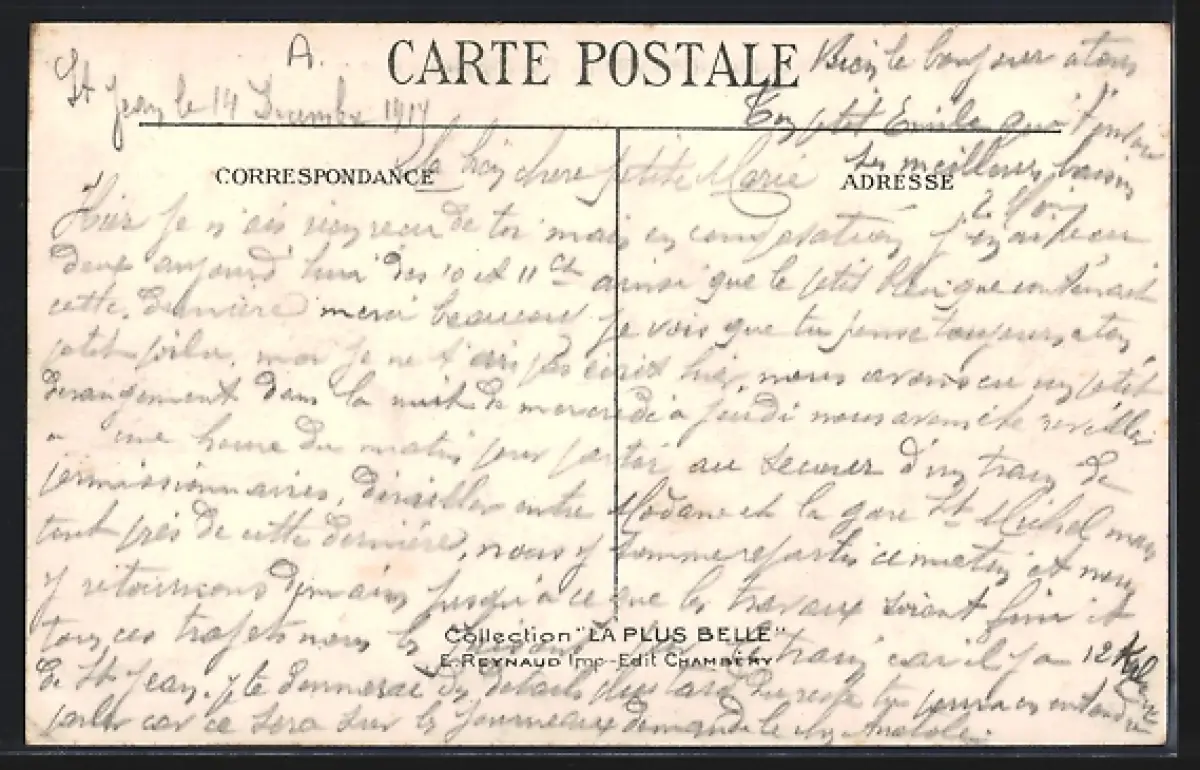 A.
CARTE POSTALE
St Jean le 14 Decembre 1917
Bien le bonjour a tous
Ton ptit Emile qui t'envoie
ses meilleurs baisers
CORRESPONDANCE
ADRESSE
Ma bien chere petite Marie
Hier je n'ais rien recu de toi mais en compensation j'en ai recu
deux aujourd'hui des 10 et 11 ct ainsi que le petit que contenait
cette derniere merci beaucoup je vois que tu pense toujours a ton
petit poilu, moi je ne t'ais pas ecrit hier, nous avons eu un petit
derangement dans la nuit de mercredi a jeudi nous avons ete reveiller
a une heure du matin pour partir au secours d'un train de
permissionnaires, derailler entre Modane et la gare St Michel mais
tout près de cette dernière, nous y sommes repartis ce matin et nous
y retournons demain jusqu'à ce que les travaux soient fini et
tous ces trajets nous les train car il y a 12 Kil
Collection "LA PLUS BELLE"
E. REYNAUD Imp-Edit CHAMBÉRY
de St Jean. Je te donnerai des details plus tard du reste tu pourras entendre
parler car ce sera sur les journeaux demande le a Anatole.